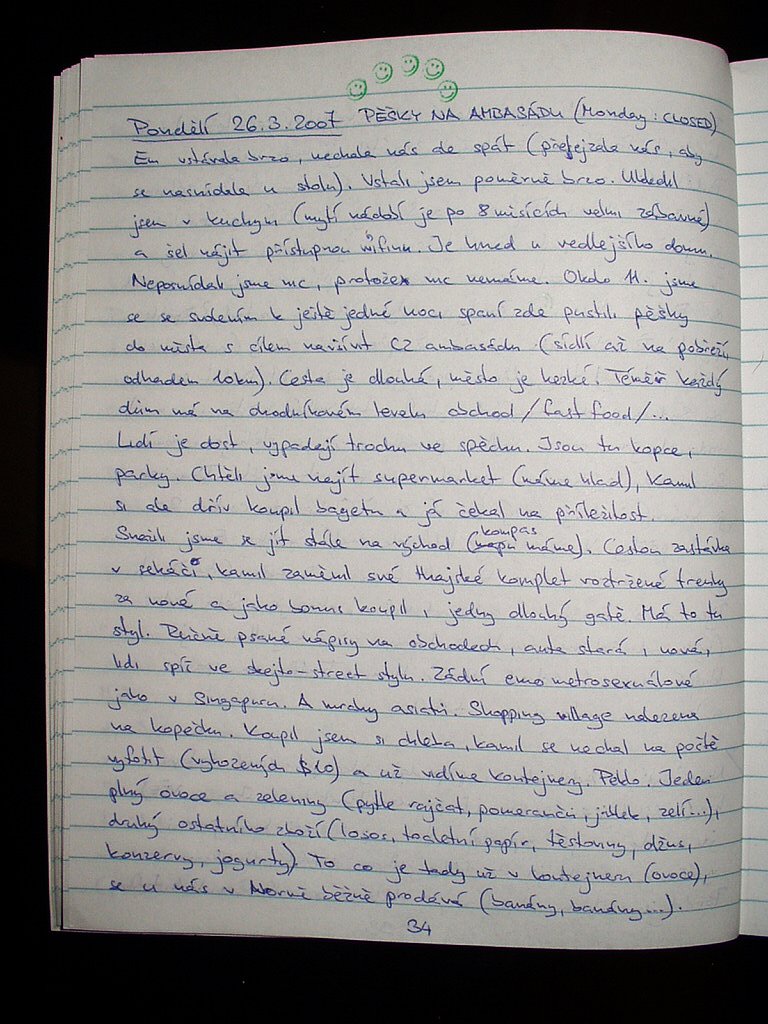 Pondělí 26.3.2007 PĚŠKY NA AMBASÁDU (Monday: CLOSED)
Em vstávala brzo, nechala nás ale spát (přejezda nás, aby
se nasnídala u stolu). Vstali jsem poměrně brzo. Uklidil
jsem v kuchyni (mytí nádobí je po 8 měsících velmi zábavné)
a šel najít přístupnou wifinu. Je hned u vedlejšího domu.
Neposnídali jsme nic, protože nic nemáme. Okolo 11. jsme
se se svolením k ještě jedné noci spaní zde pustili pěšky
do města s cílem navšívit CZ ambasádu (sídlí až na pobřeží,
odhadem 10km). Cesta je dlouhá, město je hezké. Téměř každý
dům má na chodníkovém levelu obchod/fast food/...
Lidí je dost, vypadají trochu ve spěchu. Jsou tu kopce,
parky. Chtěli jsme najít supermarket (máme hlad), Kamil
si ale dřív koupil bagetu a já čekal na příležitost.
Snažili jsme se jít stále na východ (kompas máme). Cestou zastávka
v sekáči, kamil zaměnil své thajské komplet roztržené trenky
za nové a jako bonus koupil i jedny dlouhý gatě. Má to tu
styl. Ručně psané nápisy na obchodech, auta stará i nová,
lidi spíš ve skejťo-street stylu. Žádní emo metrosexuálové
jako v Singapuru. A mraky asiatů. Shopping village nalezena
na kopečku. Koupil jsem si chleba, kamil se nechal na počtě
vyfotit (vyhozených $10) a už vidíme kontejnery. Peklo. Jeden
plný ovoce a zeleniny (pytle rajčat, pomerančů, jablek, zelí...),
druhý ostatního zboží (losos, toaletní papír, těstoviny, džus,
konzervy, jogurty). To co je tady už v kontejneru (ovoce),
se u nás v Normě běžně prodává (banány, banány...).
34